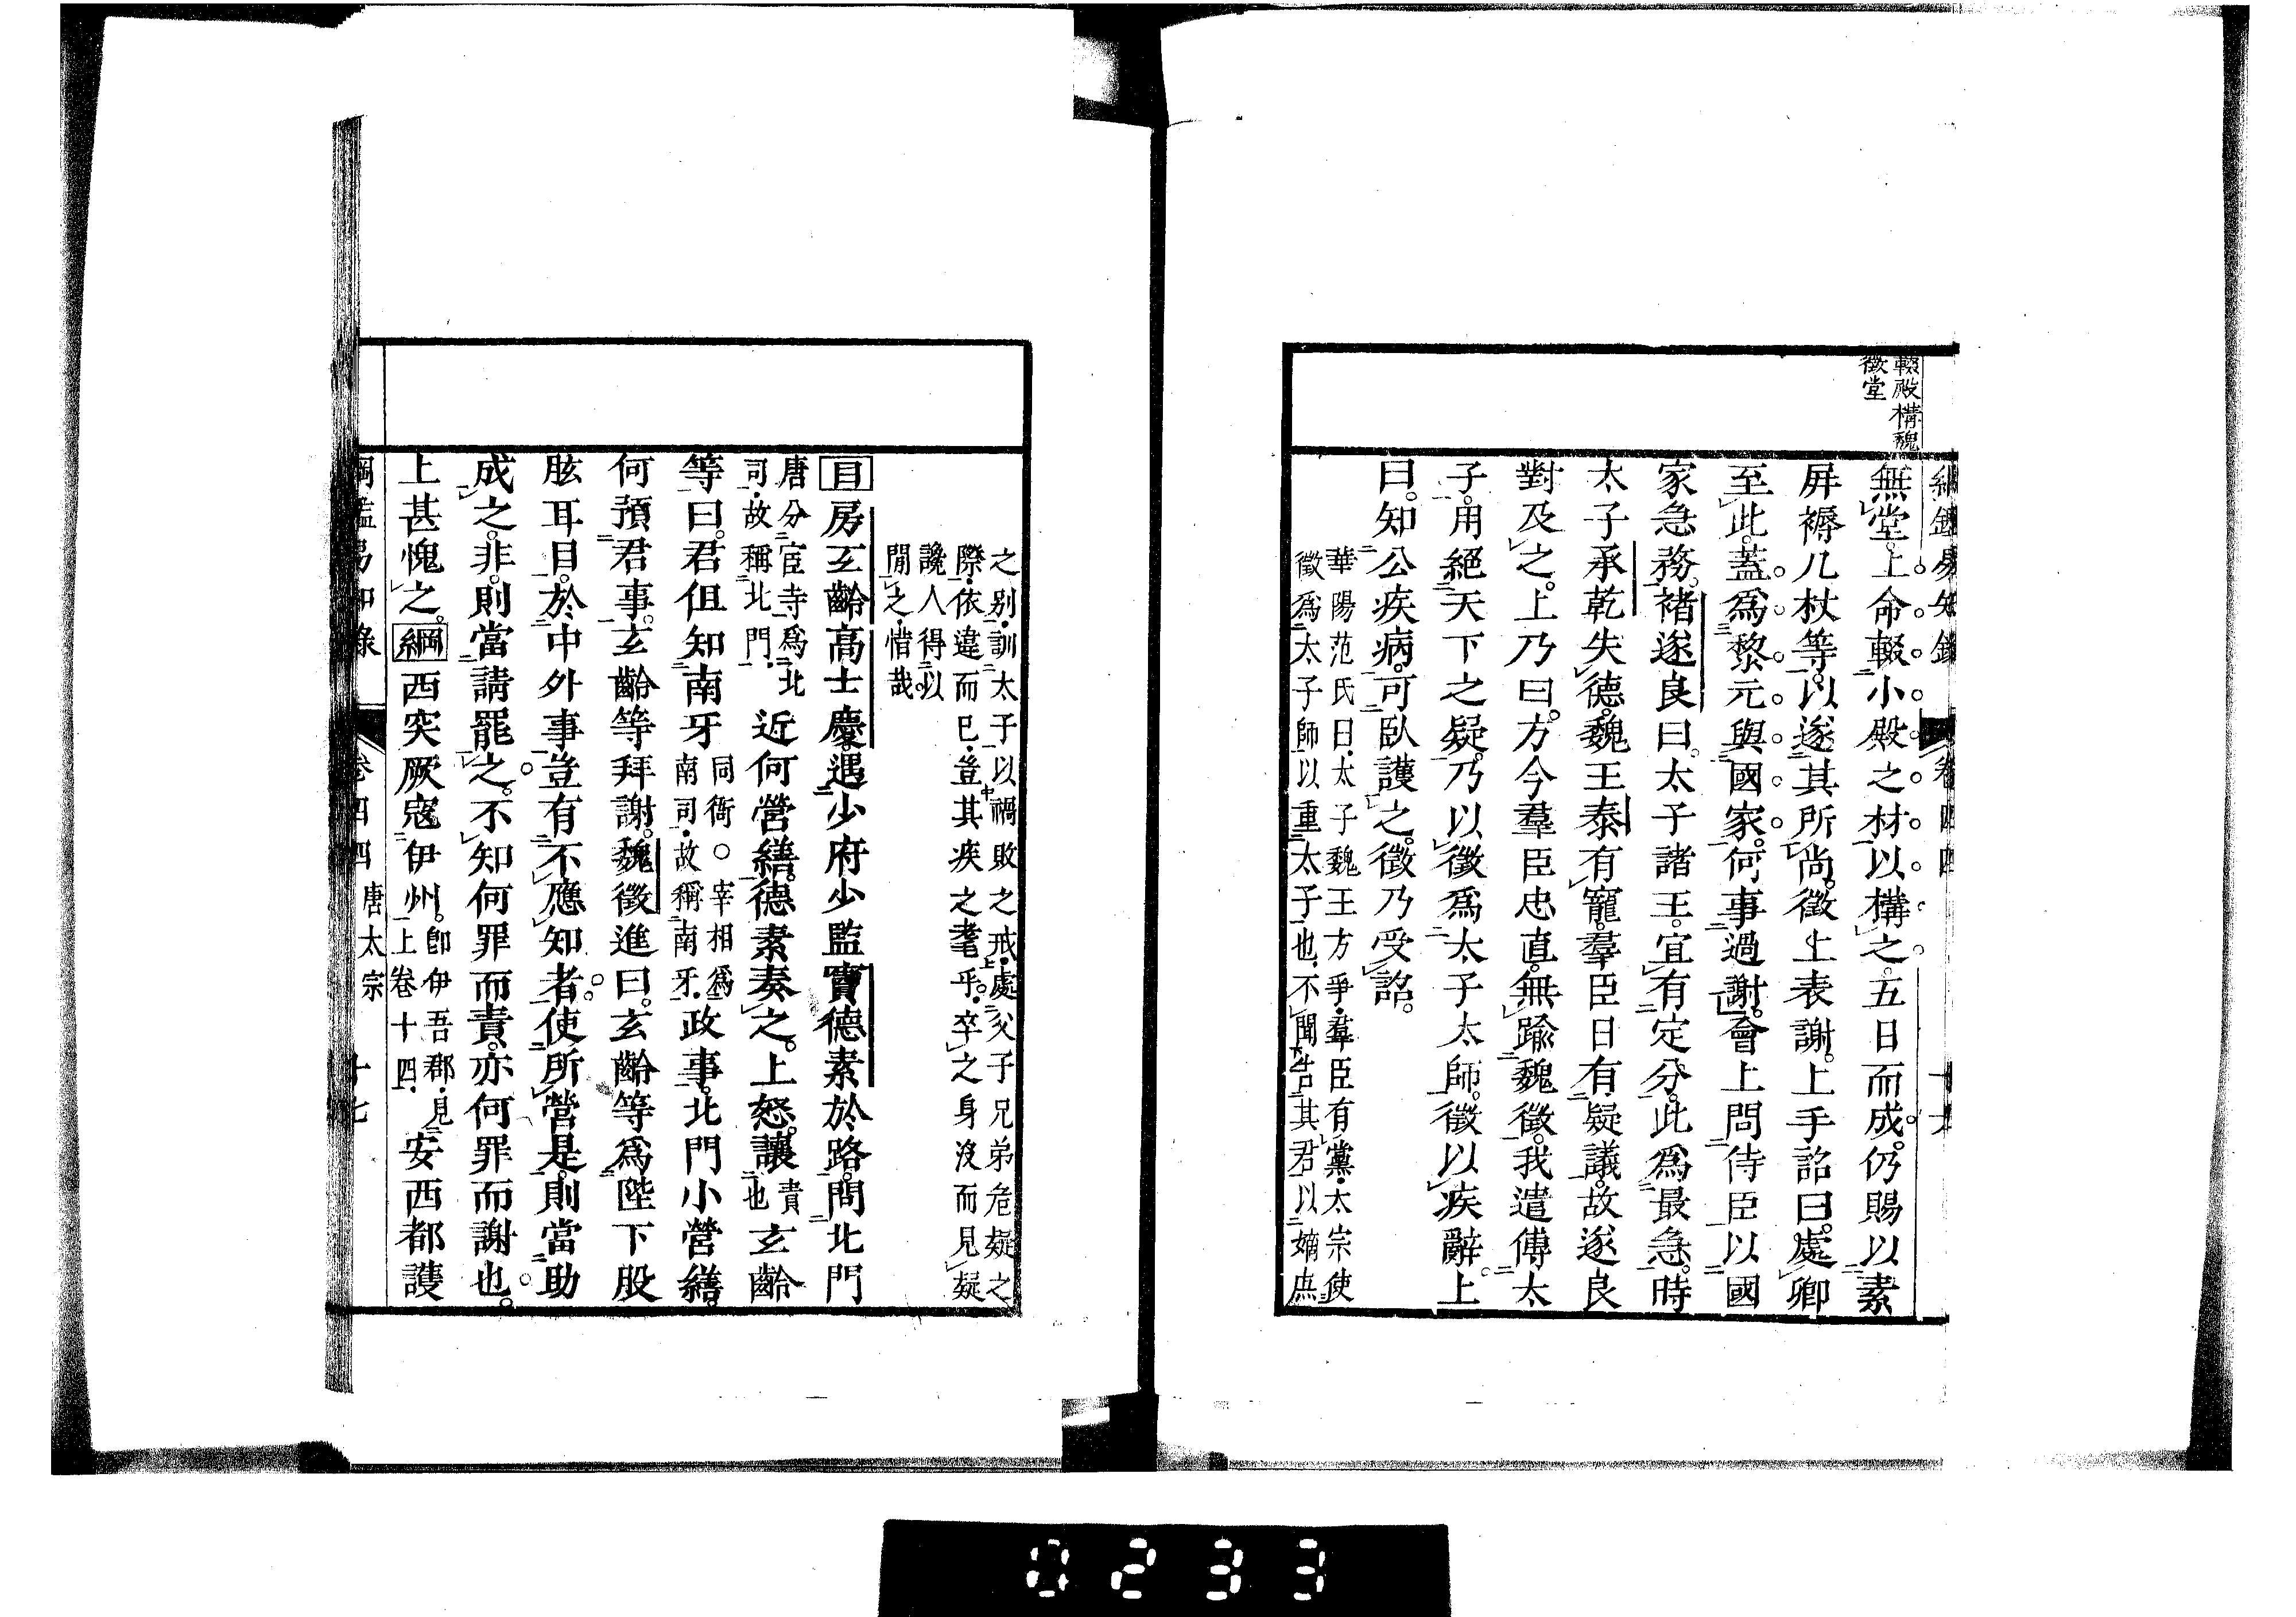 輟殿構魏
徵堂
綱鑑易知錄 卷四四 十六
無堂。上命輟小殿之材以構之。五日而成。仍賜以素
屏褥几杖等。以遂其所尚。徵上表謝。上手詔曰。處卿
至此。蓋爲黎元與國家。何事過謝。會上問侍臣以國
家急務。褚遂良曰。太子諸王。宜有定分。此爲最急。時
太子承乾失德。魏王泰有寵。羣臣日有疑議。故遂良
對及之。上乃曰。方今羣臣忠直。無踰魏徵。我遣傅太
子。用絕天下之疑。乃以徵爲太子太師。徵以疾辭。上
曰。知公疾病。可臥護之。徵乃受詔。
華陽范氏曰。太子魏王方爭。羣臣有黨。太宗使
徵爲太子師。以重太子也。不聞告其君以嫡庶
之別。訓太子以禍敗之戒。處父子兄弟危疑之
際。依違而已。豈其疾之耄乎。卒之身沒而見疑
讒人得以
閒之。惜哉。
目房玄齡高士慶遇少府少監竇德素於路。問北門
唐分宦寺爲北
司。故稱北門。
近何營繕。德素奏之。上怒。讓
責
也
玄齡
等曰。君但知南牙
同衙○宰相爲
南司。故稱南牙。
政事。北門小營繕。
何預君事。玄齡等拜謝。魏徵進曰。玄齡等爲陛下股
肱耳目。於中外事豈有不應知者。使所營是。則當助
成之。非。則當請罷之。不知何罪而責。亦何罪而謝也。
上甚愧之。綱西突厥寇伊州。
卽伊吾郡。見
上卷十四。
安西都護
綱鑑易知錄 卷四四 唐太宗 十七
0233